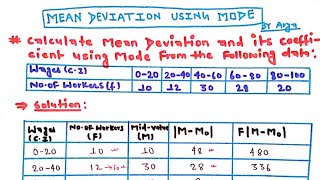 MEAN DEVIATION USING MODE
By Arya
* Calculate Mean Deviation and its coeffi-
cient using Mode from the following data:
Wages (C.I) 0-20 20-40 40-60 60-80 80-100
No. of Workers (f) 10 12 30 28 20
⇒ Solution:
Wages (C.I) No. of Workers (F) Mid-value (M) |M-Mo| F|M-Mo|
0-20 10 10 48 480
20-40 12 → fo 30 28 336